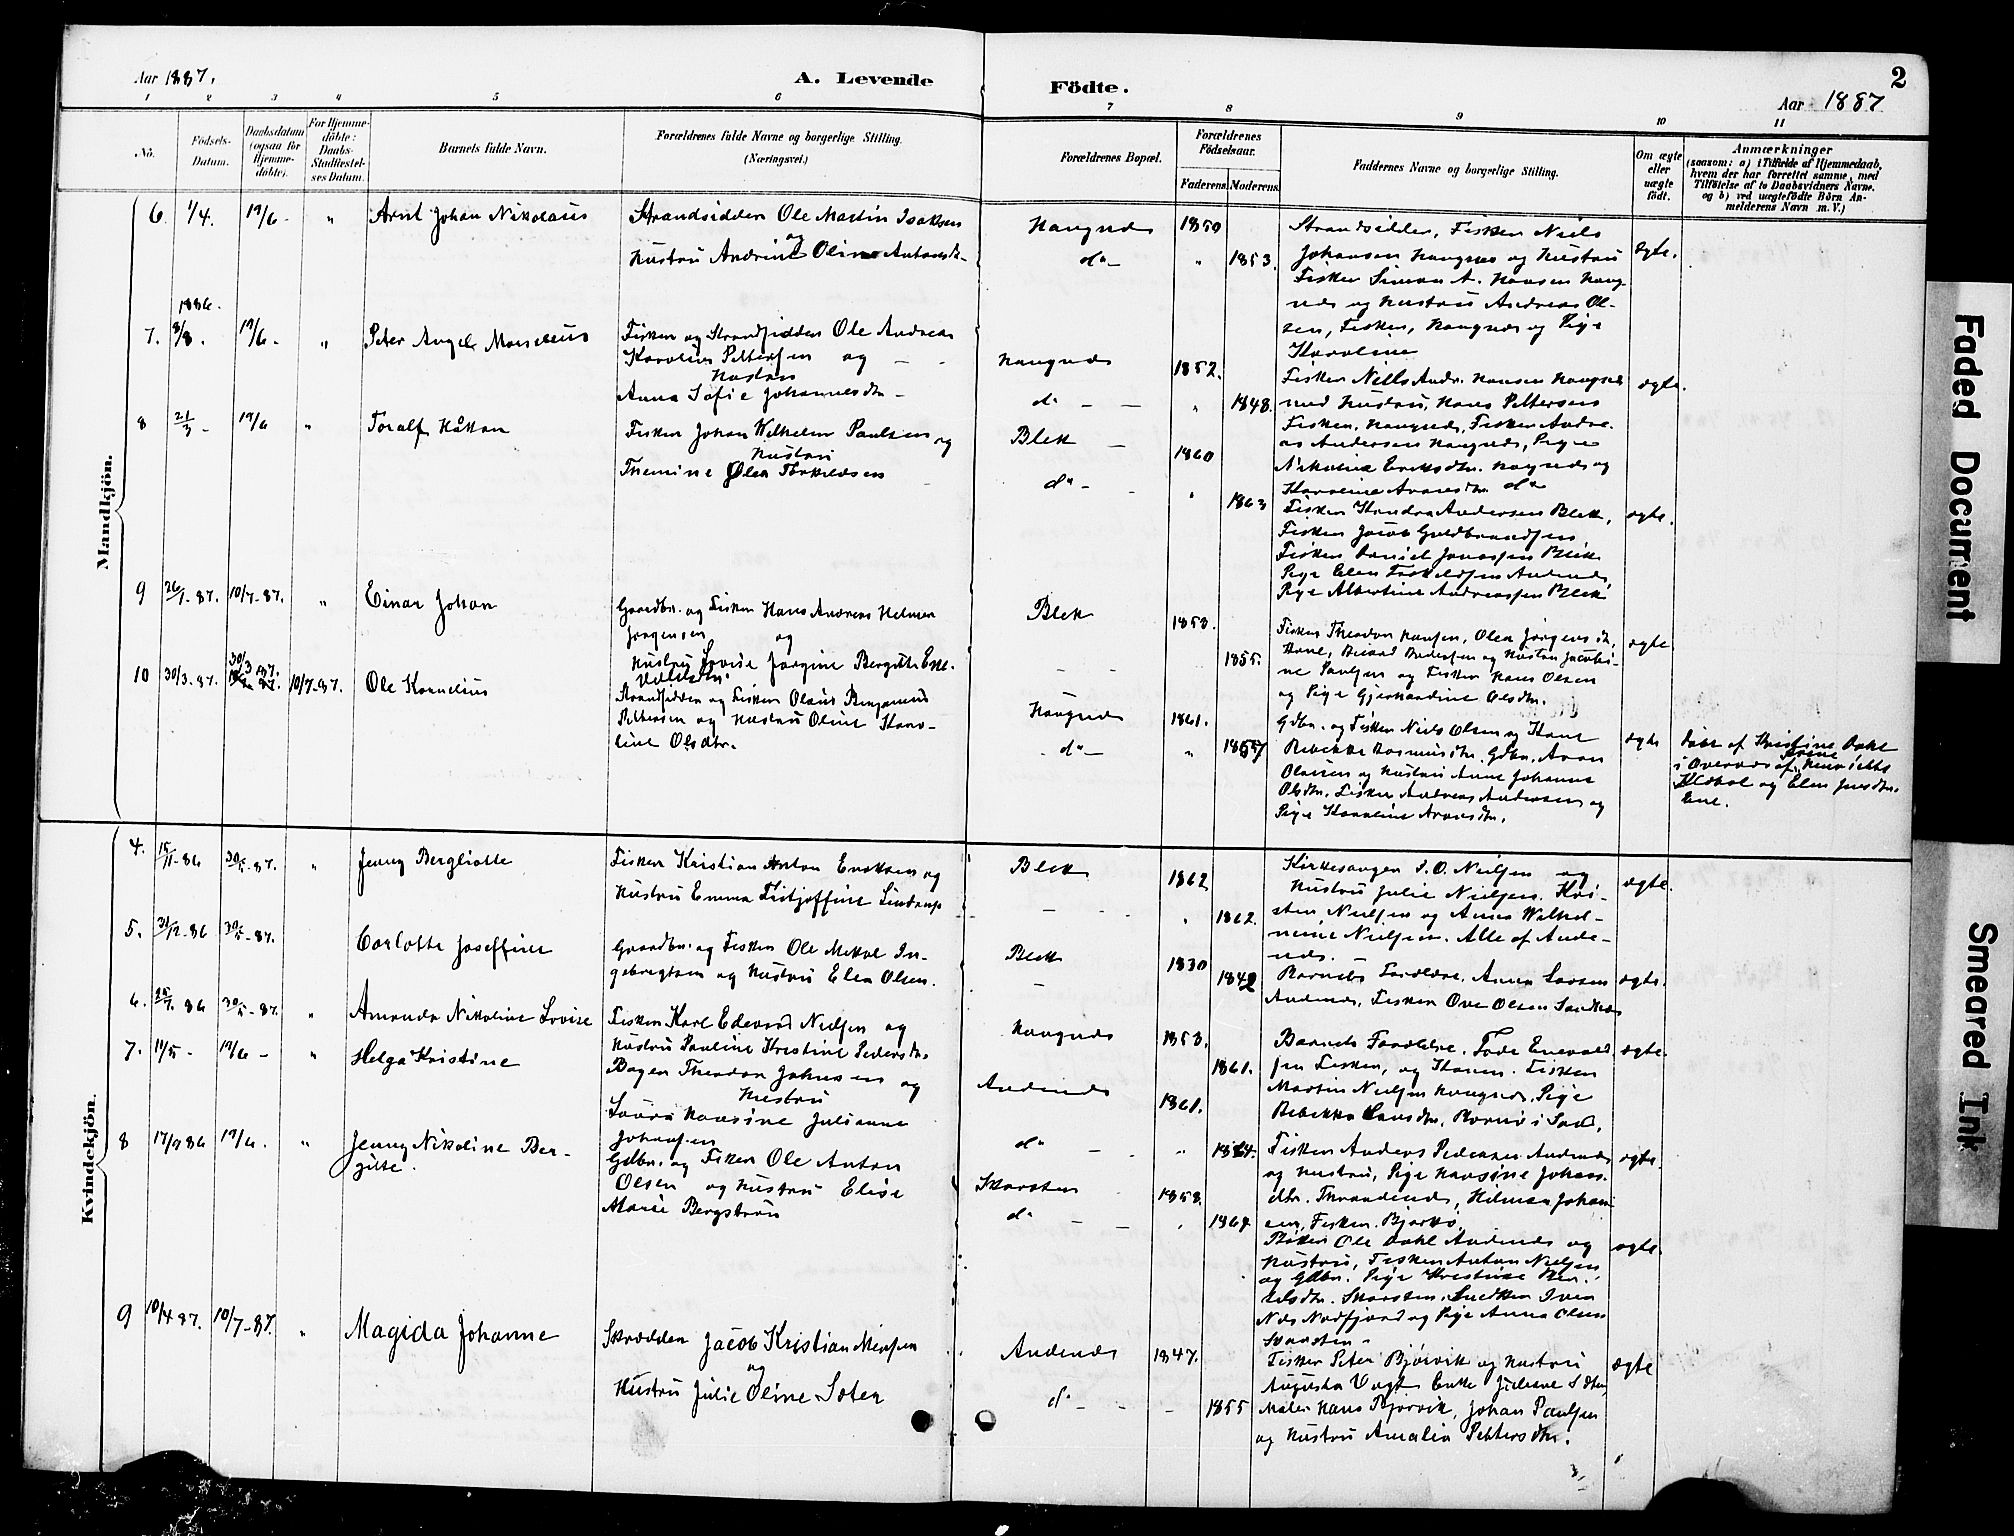 Aar 1887.
A. Levende
Födte.
2
Aar 1887
1 2 3 4 5 6 7 8 9 10 11
No.
Födsels-
Datum.
Daabsdatum
(ogsaa for
Hjemme-
döbte).
For Hjemme-
döbte:
Daabs-
Stadfæstel-
ses Datum.
Barnets fulde Navn.
Forældrenes fulde Navne og borgerlige Stilling.
(Næringsvei.)
Forældrenes Bopæl.
Forældrenes
Födselsaar.
Faderens.
Moderens.
Faddernes Navne og borgerlige Stilling.
Om ægte
eller
uægte
födt.
Anmærkninger
(saasom: a) i Tilfælde af Hjemmedaab,
hvem der har forrettet samme, med
Tilföielse af to Daabsvidners Navne.
og b) ved uægtefödte Börn An-
melderens Navn m. V.)
Mandkjön.
6. 1/4. 19/6 - " Arnt Johan Nikolaus
Strandsidder Ole Martin Isaksen
og
Hustru Andrine Oline Antonsdtr.
Haugnes 1850
do - " 1853.
Strandsidder, Fisker Niels
Johansen Haugnes og Hustru
Fisker Simon A. Hansen Haug
nes og Hustru Andreas Ol-
sen, Fisker, Haugnes og Pige
Karoline
ægte.
1886.
7. 8/8. 19/6 - " Peter Angel Marselius
Fisker og Strandsidder Ole Andreas
Karolius Pettersen og
Hustru
Anna Sofie Johannesdtr -
Haugnes 1852.
do - " 1848.
Fisker Niels Andr. Hansen Haugnes
med Hustru, Hans Pettersen
Fisker, Haugnes, Fisker Andre-
as Andersen Haugnes, Pige
Nikoline Eriksdtr. Haugnes og
Karoline Aronsdtr. do
ægte.
8 21/3 - 19/6 " Toralf Håkon
Fisker Johan Wilhelm Paulsen og
Hustru
Themine Olea Torkildsen
Blek 1860
do - " 1863
Fisker Andersen Blek,
Fisker Jacob Guldbrandsen
Fisker Daniel Jonassen Blek
Pige Elen Torkildsen Andenes,
Pige Albertine Andreassen Blek
ægte.
9 26/1 - 87. 10/7 - 87. " Einar Johan
Gaardbr. og Fisker Hans Andreas Helmer
Jørgensen og
Hustru Lovise Jørgine Bergitte Ene-
voldsen.
Blek 1858.
1855.
Fisker Theodor Hansen, Olea Jørgensdtr.
ne Paulsen og Fisker Hans Olsen
og Pige Gjerhardine Olsdtr.
ægte.
10 30/3 - 87. 30/3 1887. 10/7 - 87. Ole Kornelius
Strandsidder og Fisker Olaus Benjamins
Pettersen og Hustru Oline Karo-
line Olsdtr.
Haugnes 1861.
do - " 1857
Gdbr. og Fisker Niels Olsen og Kone
Rebekka Rasmusdtr. Gdbr. Aron
Olsen og Hustru Anne Johanne
Olsdtr. Fisker Andreas Andersen og
Pige Karoline Aronsdtr.
ægte
Døbt af Kristine Dahl
Henriette
og Elen Jensdtr.
Kvindekjön.
4. 15/11 - 86 30/5 - 87. " Jenny Bergliotte
Fisker Kristian Anton Eriksen og
Hustru Emma Fritjoffine Lindrup
Blek 1862
- " 1862.
Kirkesanger I. O. Nielsen og
Hustru Julie Nielsen. Kri-
sten Nielsen og Anna Wilhel-
mine Nielsen. Alle af Ande-
nes.
ægte.
5. 31/12 - 86 30/5 - 87. Carlotte Joseffine
Gaardbr. og Fisker Ole Mekal In-
gebregtsen og Hustru Elen Olsen.
Blek 1830
- 1842
Barnets Forældre. Anna Larsen
Andenes, Fisker Ove Olsen
ægte.
6. 25/7. 86 30/5 - 87. " Amanda Nikoline Lovise
Fisker Karl Edevard Nielsen og
Hustru Pauline Kristine Pedersdtr.
Haugnes 1853.
1861.
Barnets Forældre. Tode Enevold
sen Fisker, og Konen. Fisker
Martin Nielsen Haugnes, Pige
Rebekka Larsdtr.
ægte.
7. 11/5 - 19/6 - " Helga Kristine
Bager Theodor Johnsen og
Hustru
Laura Hansine Julianne
Johansen
Andenes 1861.
do - " 1864.
Fisker Anders Pedersen Andenes
og Hustru, Pige Hansine Johans
dtr. Throndenes, Hilmar Johan
sen, Fisker. Bjarkø.
ægte.
8 17/9 86 19/6. " Jenny Nikoline Ber-
gitte.
Gdbr. og Fisker Ole Anton
Olsen og Hustru Elise
Marie Bergstrøm
Skarsten 1858.
do - " 1864
Ole Dahl Andenes og
Hustru, Fisker Anton Nielsen
og Gdbr. Pige Kristine
Skarsten. Snedker Iver
Nordfjord og Pige Anna Olsen
Skarsten.
ægte.
9 10/4 87. 10/7 - 87. " Magida Johanne
Skrædder Jacob Kristian Meisen
og
Hustru Julie Oline Sæter
Andenes 1847.
do - 1855
Fisker Peter Bjørvik og Hustru
Augusta Vogt Enke
Maler Hans Bjørvik, Johan Paulsen
og Hustru Amalia Pettersdtr.
ægte
Faded Document
Smeared Ink